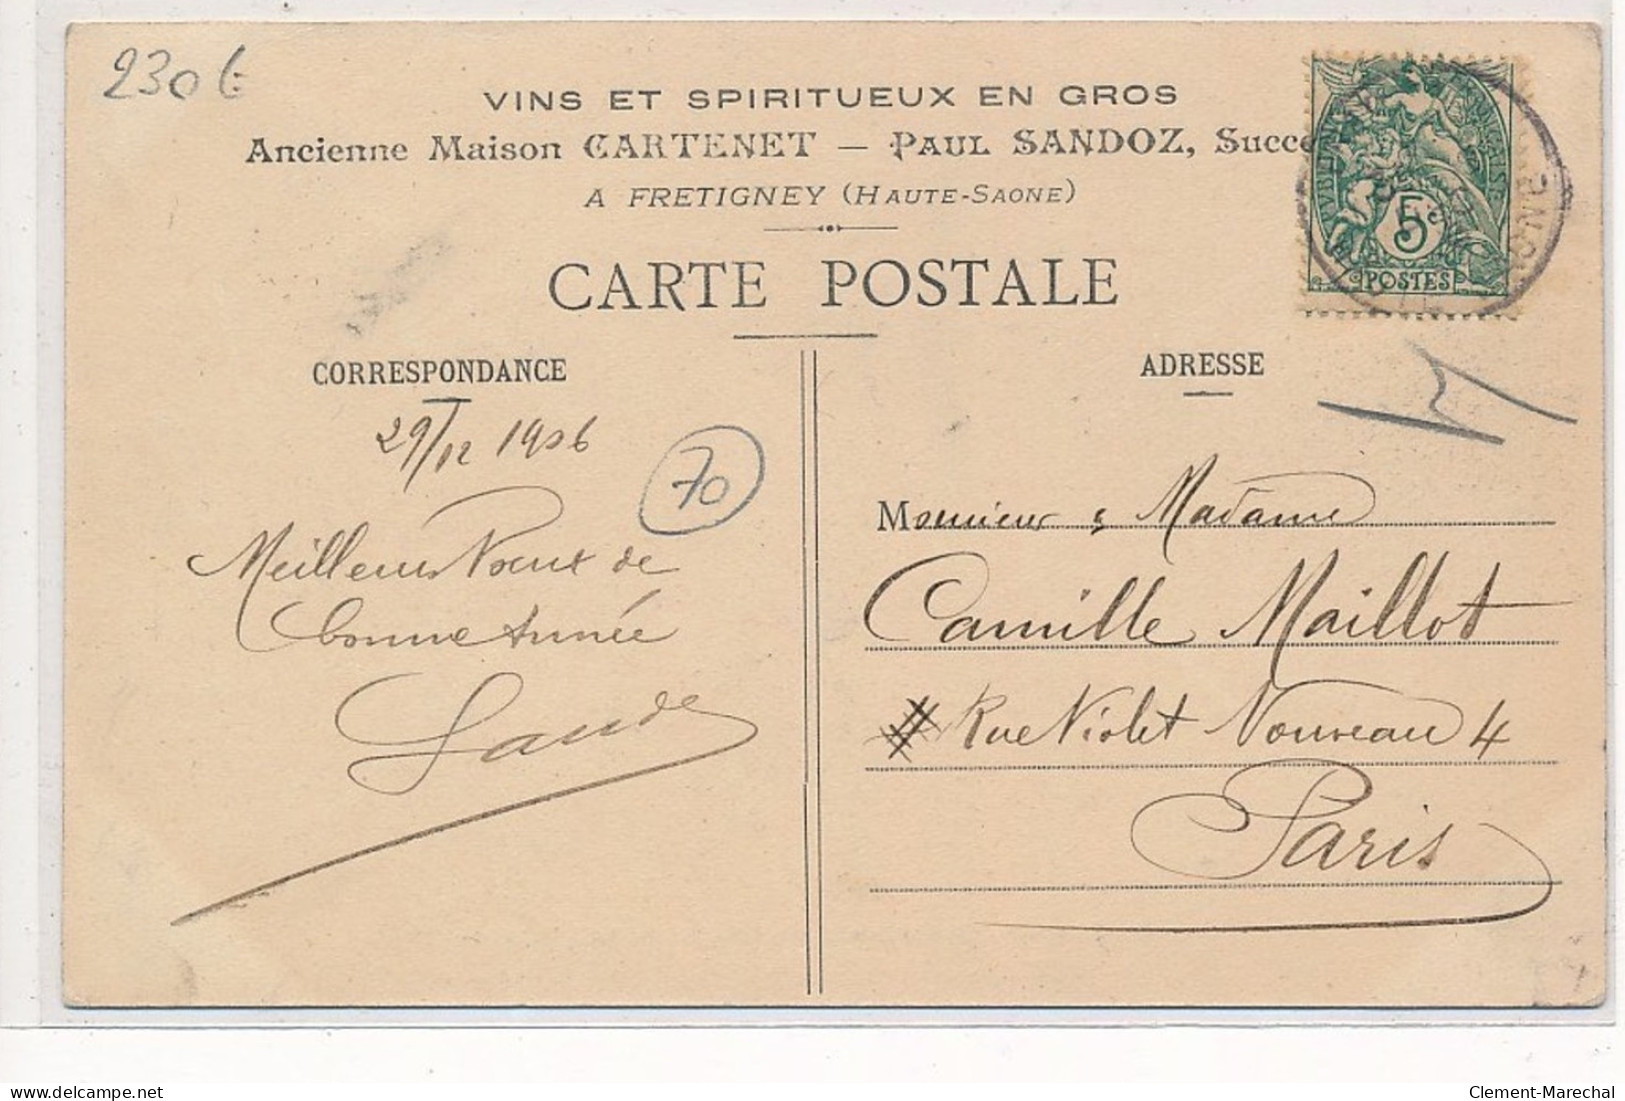 230 E
VINS ET SPIRITUEUX EN GROS
Ancienne Maison CARTENET — PAUL SANDOZ, Succe
A FRETIGNEY (HAUTE-SAONE)
CARTE POSTALE
5c
POSTES
CORRESPONDANCE
29/12 1906
70
Meilleurs Vœux de
bonne Année
ADRESSE
Monsieur & Madame
Camille Maillot
Rue Violet Nouveau 4
Paris
www.delcampe.net
Clement-Marechal